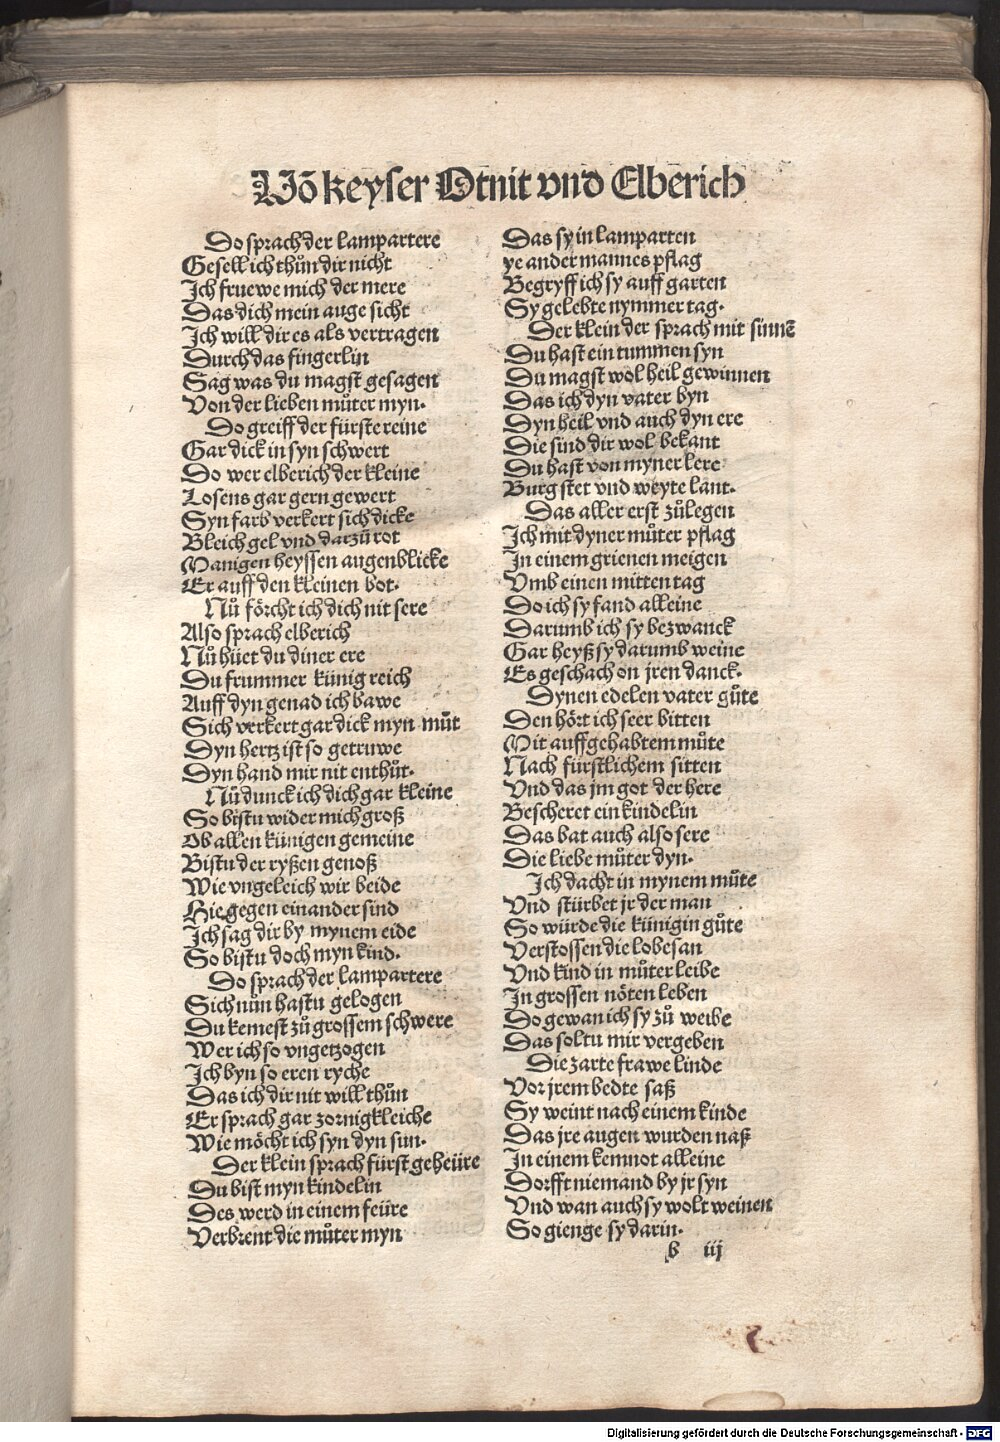 Võ keyser Otnit vnd Elberich
Do sprach der lampartere
Gesell ich thůn dir nicht
Ich fruewe mich der mere
Das dich mein auge sicht
Ich will dir es als vertragen
Durch das fingerlin
Sag was du magst gesagen
Von der lieben můter myn.
Do greiff der fürste reine
Gar dick in syn schwert
Do wer elberich der kleine
Losens gar gern gewert
Syn farb verkert sich dicke
Bleich gel vnd darzů rot
Manigen heyssen augenblicke
Er auff den kleinen bot.
Nů förcht ich dich nit sere
Also sprach elberich
Nů hüet du diner ere
Du frummer künig reich
Auff dyn genad ich bawe
Sich verkert gar dick myn můt
Dyn hertz ist so getruwe
Dyn hand mir nit enthůt.
Nů dunck ich dich gar kleine
So bistu wider mich groß
Ob allen künigen gemeine
Bistu der ryßen genoß
Wie vngeleich wir beide
Hie gegen einander sind
Ich sag dir by mynem eide
So bistu doch myn kind.
Do sprach der lampartere
Sich nůn hastu gelogen
Du kemest zů grossem schwere
Wer ich so vngetzogen
Ich byn so eren ryche
Das ich dir nit will thůn
Er sprach gar zornigkleiche
Wie möcht ich syn dyn sun.
Der klein sprach fürst geheüre
Du bist myn kindelin
Des werd in einem feüre
Verbrent die můter myn
Das sy in lamparten
ye ander mannes pflag
Begryff ich sy auff garten
Sy gelebte nymmer tag.
Der klein der sprach mit sinnẽ
Du hast ein tummen syn
Du magst wol heil gewinnen
Das ich dyn vater byn
Dyn heil vnd auch dyn ere
Die sind dir wol bekant
Du hast von myner lere
Burg stet vnd weyte lant.
Das aller erst zůlegen
Ich mit dyner můter pflag
In einem grienen meigen
Vmb einen mitten tag
Do ich sy fand alleine
Darumb ich sy bezwanck
Gar heyß sy darumb weine
Es geschach on jren danck.
Dynen edelen vater gůte
Den hört ich seer bitten
Mit auffgehabtem můte
Nach fürstlichem sitten
Vnd das jm got der here
Bescheret ein kindelin
Das bat auch also sere
Die liebe můter dyn.
Ich dacht in mynem můte
Vnd stürbet jr der man
So würde die künigin gůte
Verstossen die lobesan
Vnd kind in můter leibe
In grossen nöten leben
Do gewan ich sy zů weibe
Das soltu mir vergeben
Die zarte frawe linde
Vor jrem bedte saß
Sy weint nach einem kinde
Das jre augen wurden naß
In einem kemnot alleine
Dorfft niemand by jr syn
Vnd wan auch sy wolt weinen
So gienge sy darin.
b iij
Digitalisierung gefördert durch die Deutsche Forschungsgemeinschaft - DFG